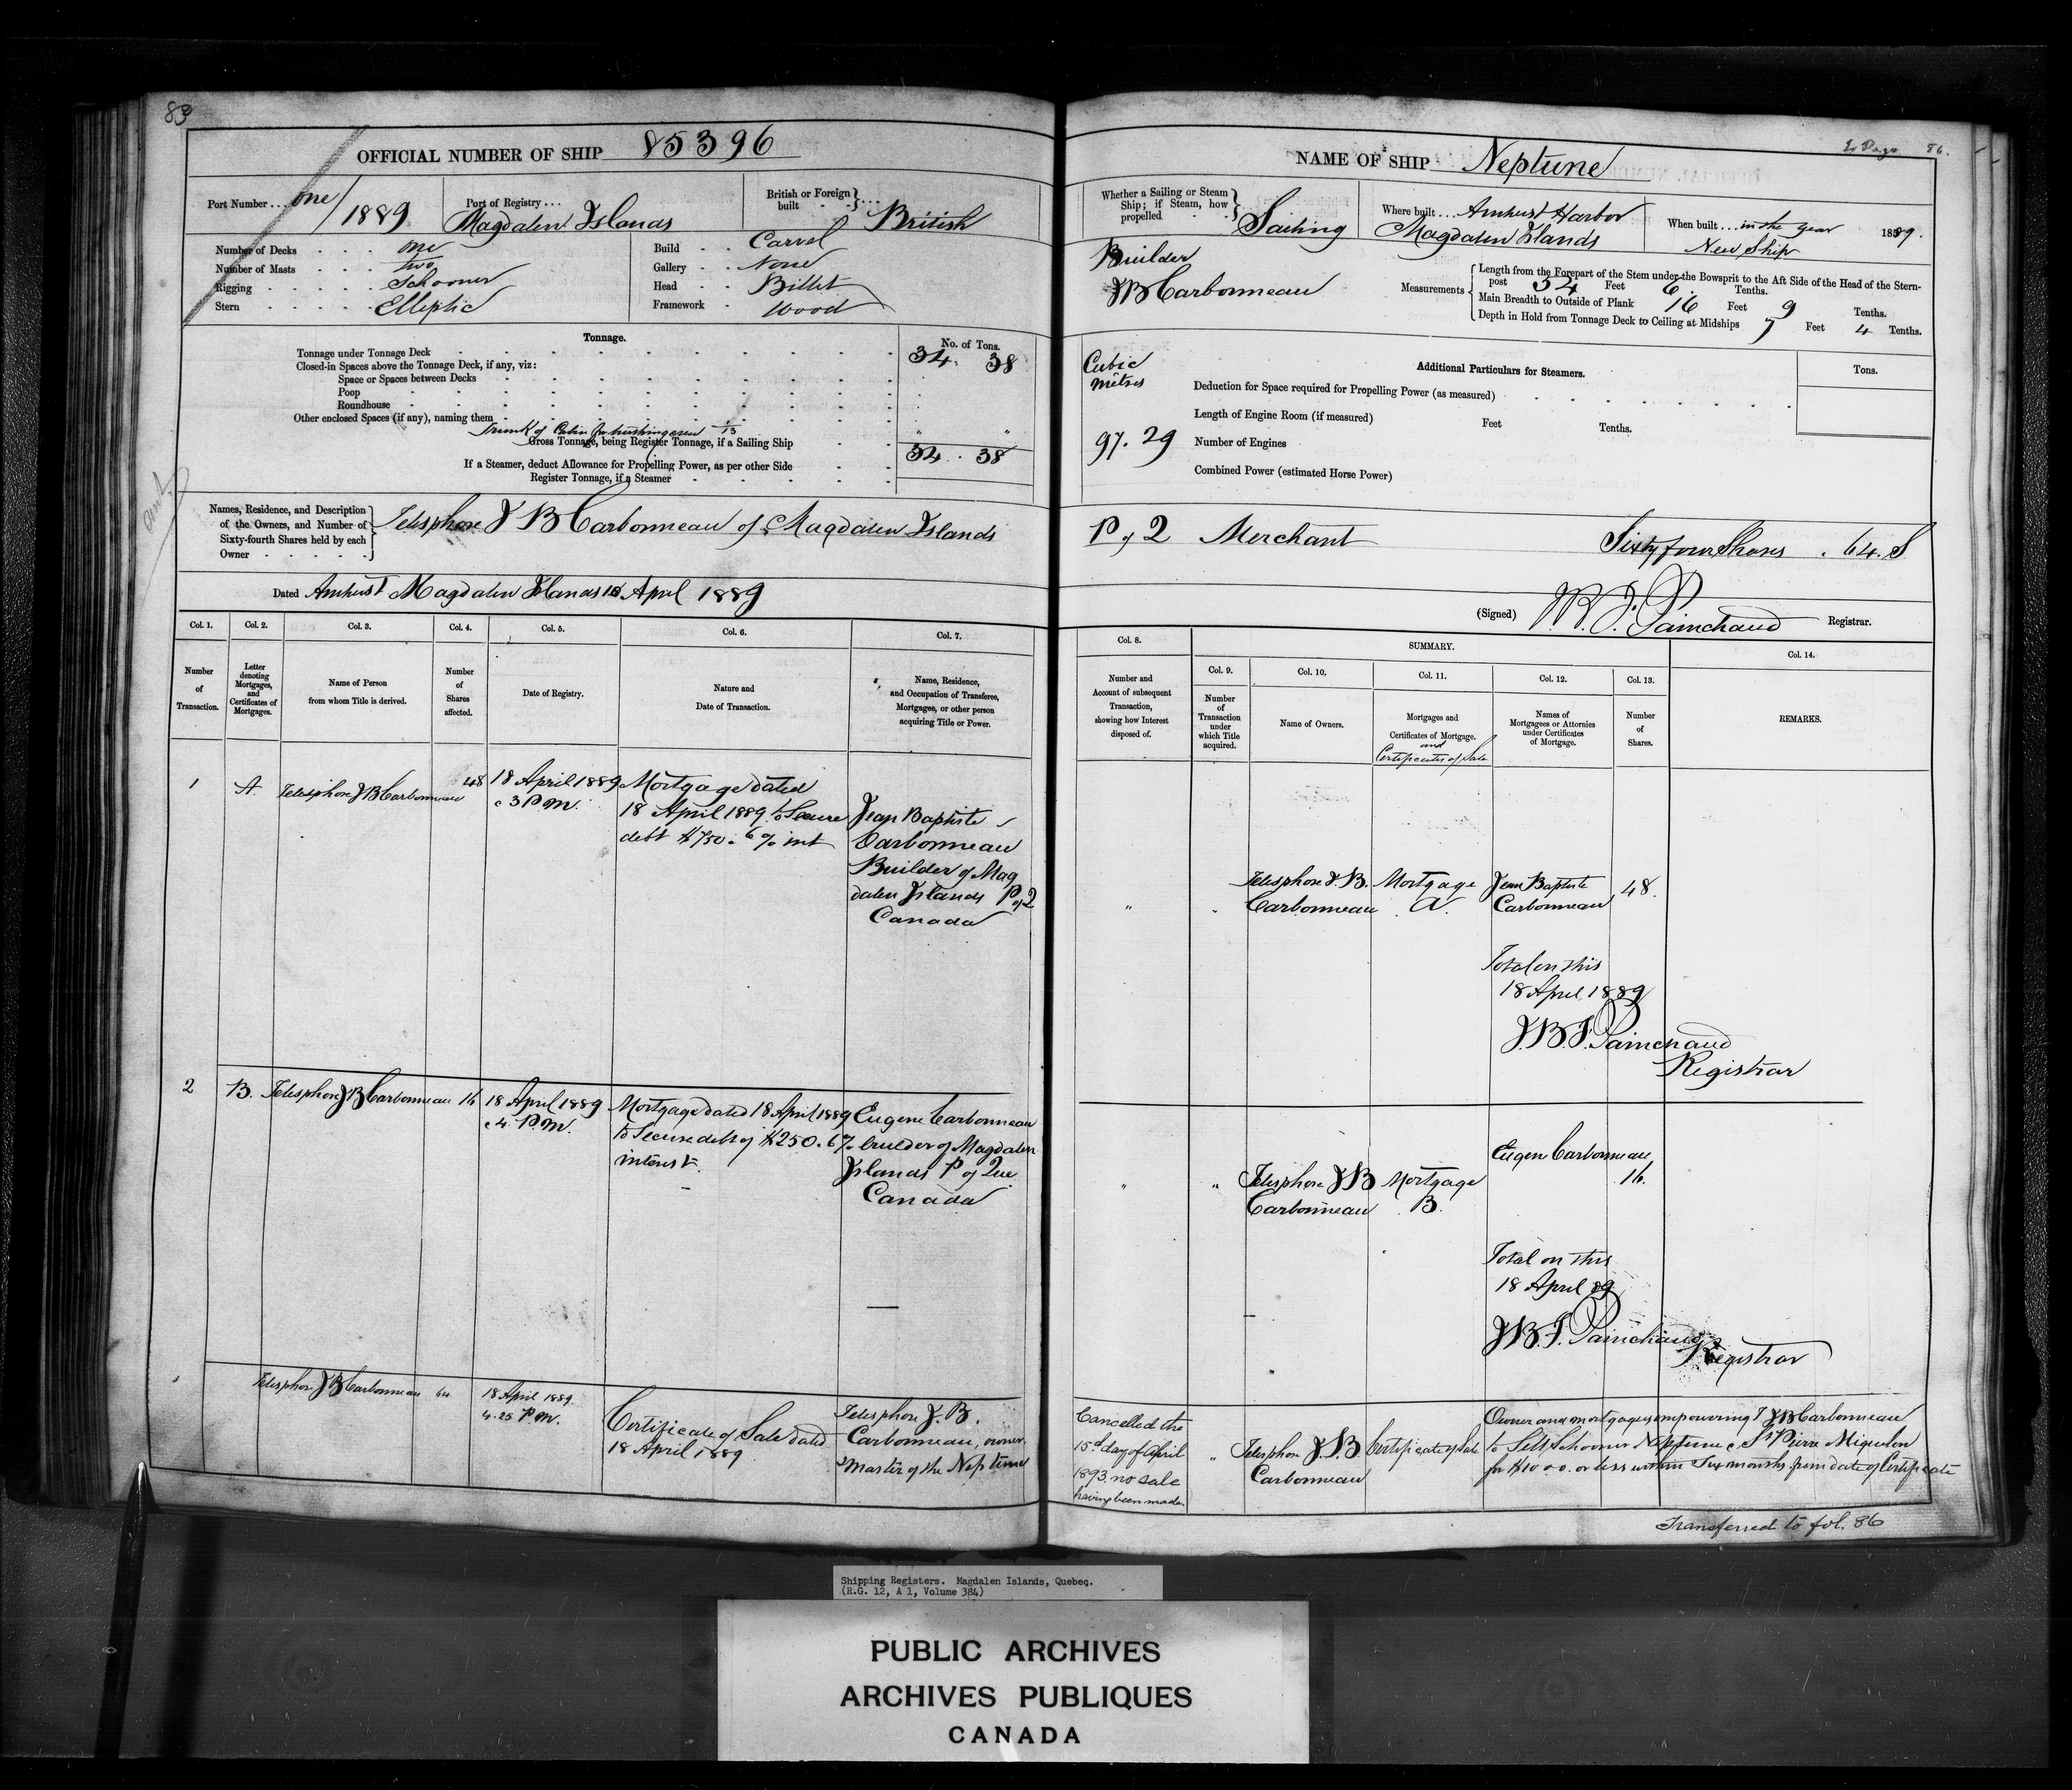 83
OFFICIAL NUMBER OF SHIP 85396
Port Number ... one/1889
Port of Registry ... Magdalen Islands
British or Foreign built British
Number of Decks one
Number of Masts two
Rigging Schooner
Stern Elliptic
Build Carvel
Gallery None
Head Billet
Framework Wood
Tonnage.
No. of Tons.
Tonnage under Tonnage Deck 34. 38
Closed-in Spaces above the Tonnage Deck, if any, viz:
Space or Spaces between Decks
Poop
Roundhouse
Other enclosed Spaces (if any), naming them
Trunk of Cabin
Gross Tonnage, being Register Tonnage, if a Sailing Ship 34. 38
If a Steamer, deduct Allowance for Propelling Power, as per other Side
Register Tonnage, if a Steamer
Names, Residence, and Description of the Owners, and Number of Sixty-fourth Shares held by each Owner
Telesphore J B Carbonneau of Magdalen Islands
Dated Amherst Magdalen Islands 18 April 1889
Col. 1. Col. 2. Col. 3. Col. 4. Col. 5. Col. 6. Col. 7.
Number of Transaction.
Letter denoting Mortgages, and Certificates of Mortgages.
Name of Person from whom Title is derived.
Number of Shares affected.
Date of Registry.
Nature and Date of Transaction.
Name, Residence, and Occupation of Transferee, Mortgagee, or other person acquiring Title or Power.
1 A. Telesphore J B Carbonneau 48
18 April 1889
3 P.M.
Mortgage dated
18 April 1889 to Secure
debt $750. 6 % int
Jean Baptiste
Carbonneau
Builder of Mag
dalen Islands P of 2
Canada
2 B. Telesphore J B Carbonneau 16
18 April 1889
4 P.M.
Mortgage dated 18 April 1889
to Secure debt of $250. 6 %
interest.
Eugene Carbonneau
builder of Magdalen
Islands P of Que
Canada
Telesphore J B Carbonneau 64
18 April 1889
4.25 P.M.
Certificate of Sale dated
18 April 1889
Telesphore J. B.
Carbonneau, owner,
Master of the Neptune
NAME OF SHIP Neptune
to Page 86.
Whether a Sailing or Steam Ship; if Steam, how propelled Sailing
Where built ... Amherst Harbor
Magdalen Islands
When built ... in the year 1889.
New Ship
Builder
J B Carbonneau
Measurements
Length from the Forepart of the Stem under the Bowsprit to the Aft Side of the Head of the Stern-
post 54 Feet 6. Tenths.
Main Breadth to Outside of Plank 16 Feet 9 Tenths.
Depth in Hold from Tonnage Deck to Ceiling at Midships 7 Feet 4 Tenths.
Cubic
mètres
97. 29
Additional Particulars for Steamers.
Tons.
Deduction for Space required for Propelling Power (as measured)
Length of Engine Room (if measured) Feet Tenths.
Number of Engines
Combined Power (estimated Horse Power)
P of 2 Merchant Sixty four Shares . 64. S
(Signed) J. B. F. Painchaud Registrar.
Col. 8.
SUMMARY.
Col. 9. Col. 10. Col. 11. Col. 12. Col. 13. Col. 14.
Number and Account of subsequent Transaction, showing how Interest disposed of.
Number of Transaction under which Title acquired.
Name of Owners.
Mortgages and Certificates of Mortgage.
and
Certificates of Sale
Names of Mortgagees or Attornies under Certificates of Mortgage.
Number of Shares.
REMARKS.
" " Telesphore J. B. Carbonneau
Mortgage A.
Jean Baptiste Carbonneau
48.
Total on this
18 April 1889
J.B.F. Painchaud
Registrar
" " Telesphore J B Carbonneau
Mortgage B.
Eugene Carbonneau
16.
Total on this
18 April 89
J.B.F. Painchaud
Registrar
Cancelled the
15th day of April
1893 no sale
having been made.
" Telesphore J. B Carbonneau
Certificate of Sale
Owner and mortgagees empowering T J B Carbonneau
to Sell Schooner Neptune @ St Pierre Miquelon
for $1000. or less within Six months from date of Certificate
Transferred to fol. 86
Shipping Registers. Magdalen Islands, Quebec.
(R.G. 12, A 1, Volume 384)
PUBLIC ARCHIVES
ARCHIVES PUBLIQUES
CANADA